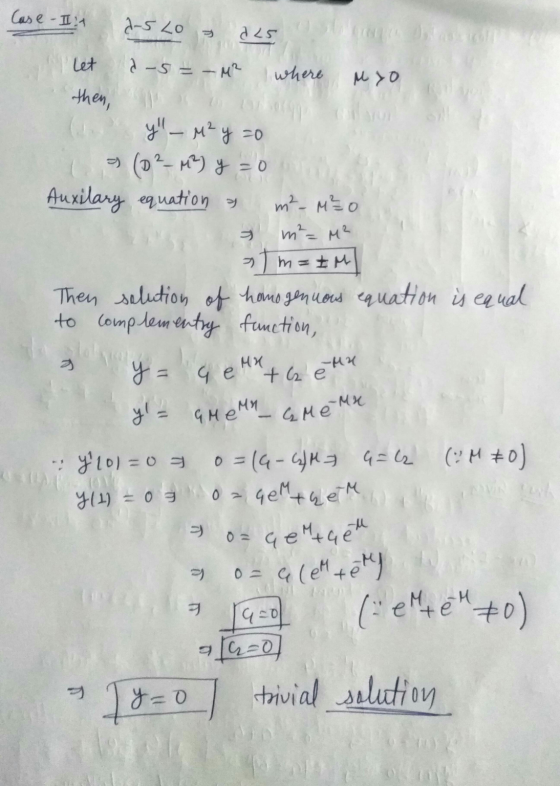 Case-II:→ λ-5<0 ⇒ λ<5
Let λ-5 = -μ² where μ>0
then,
y'' - μ² y = 0
⇒ (D² - μ²) y = 0
Auxilary equation ⇒ m² - μ² = 0
⇒ m² = μ²
⇒ m = ± μ
Then solution of homogenuous equation is equal
to complementry function,
⇒ y = c₁ e^{μx} + c₂ e^{-μx}
y' = c₁μe^{μx} - c₂μe^{-μx}
∵ y'(0) = 0 ⇒ 0 = (c₁ - c₂)μ ⇒ c₁ = c₂ (∵ μ ≠ 0)
y(1) = 0 ⇒ 0 = c₁e^{μ} + c₂e^{-μ}
⇒ 0 = c₁e^{μ} + c₁e^{-μ}
⇒ 0 = c₁(e^{μ} + e^{-μ})
⇒ c₁=0 (∵ e^{μ} + e^{-μ} ≠ 0)
⇒ c₂=0
⇒ y = 0 trivial solution